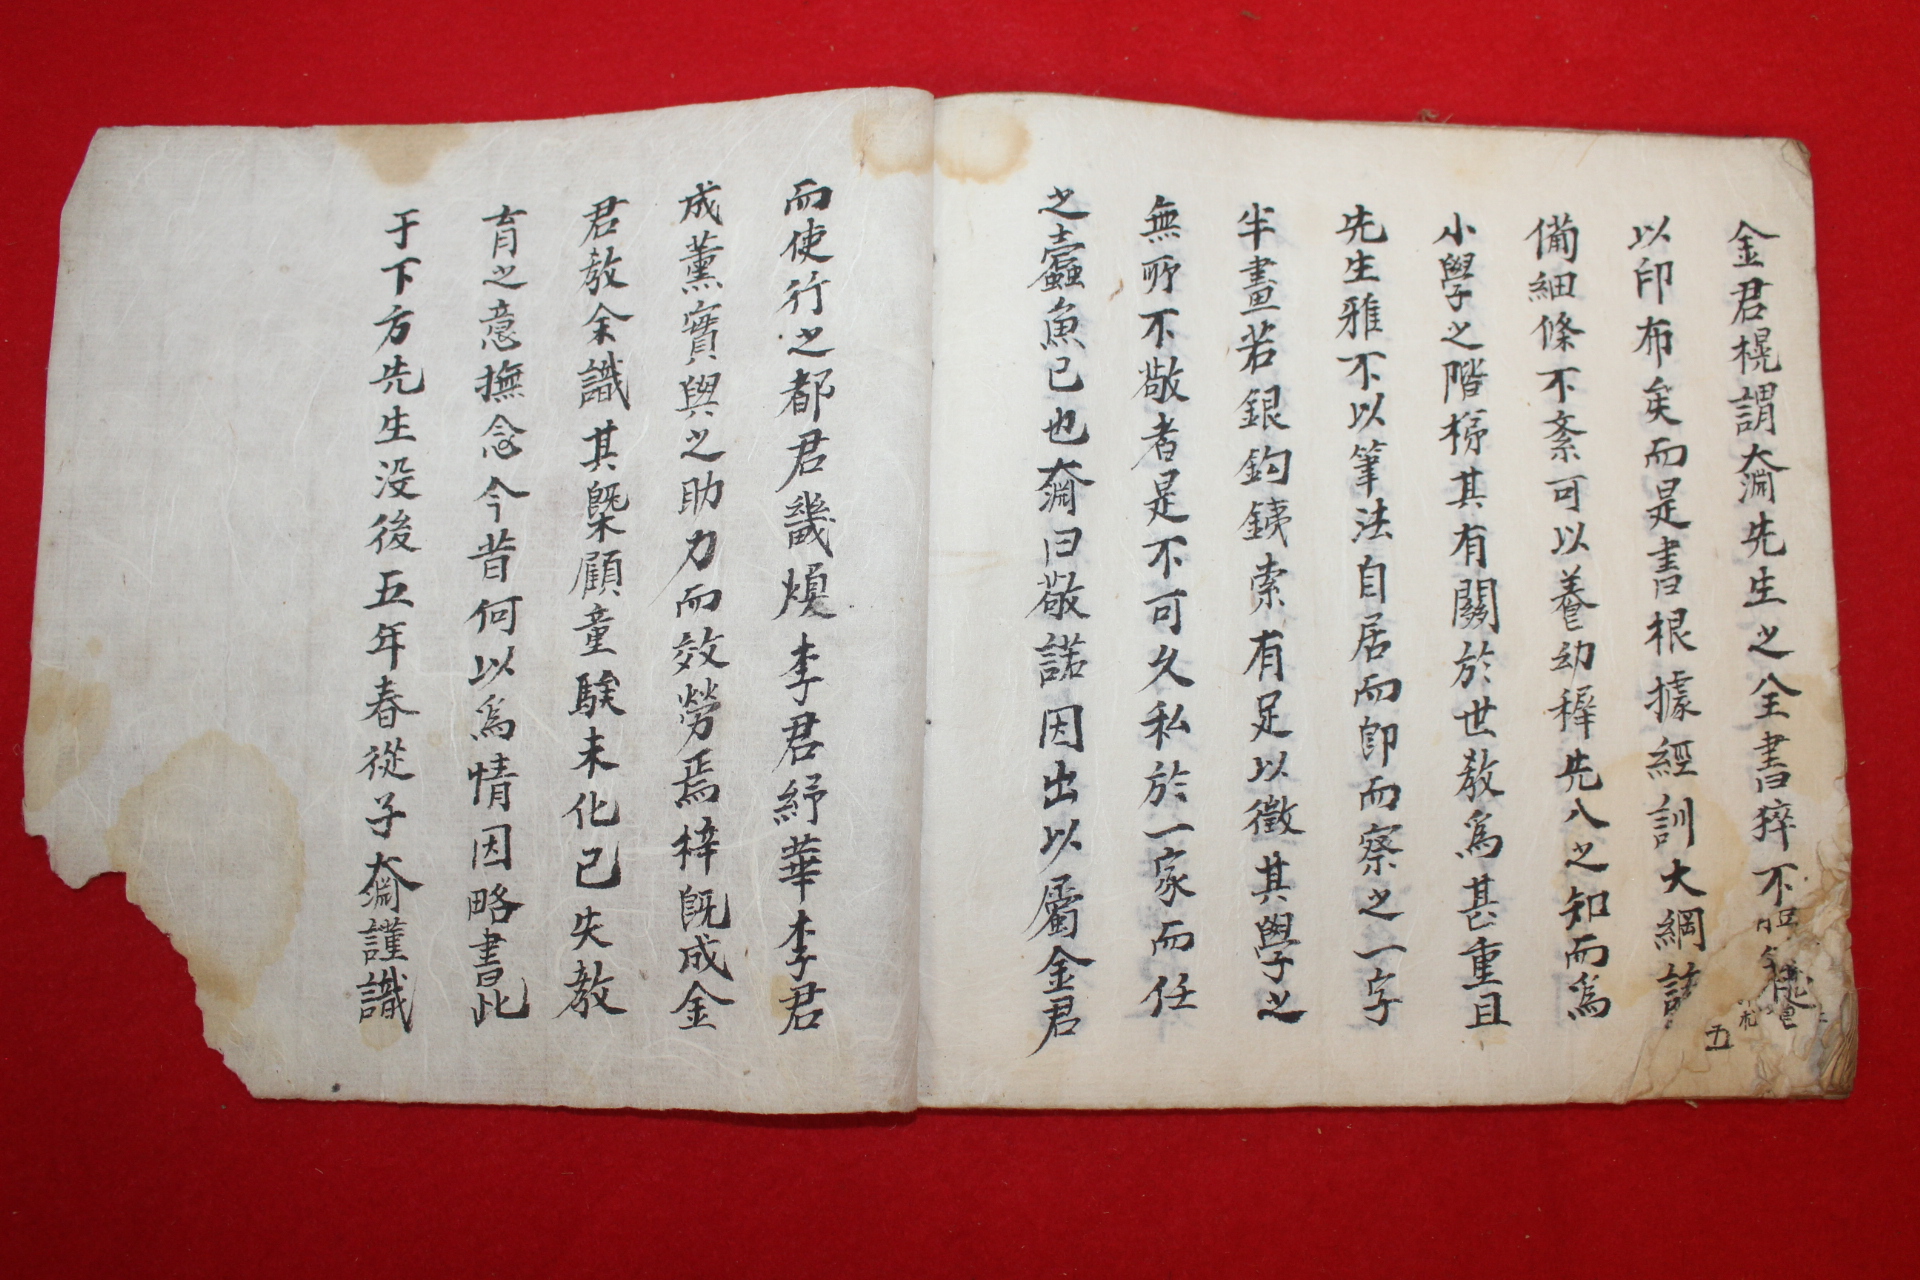 金君榥謂奫先生之全書猝不
以印布矣而是書根據經訓大綱
備細條不紊可以養幼穉先入之知而爲
小學之階梯其有關於世敎爲甚重且
先生雅不以筆法自居而卽而察之一字
半畫若銀鈎銕索有足以徵其學之
無所不敬者是不可久私於一家而任
之蠹魚已也奫曰敬諾因出以屬金君
而使行之都君畿煥李君紓華李君
成薰實與之助力而效勞焉梓旣成金
君敎余識其槩顧童騃未化已失敎
育之意撫念今昔何以爲情因略書此
于下方先生没後五年春從子奫謹識
五